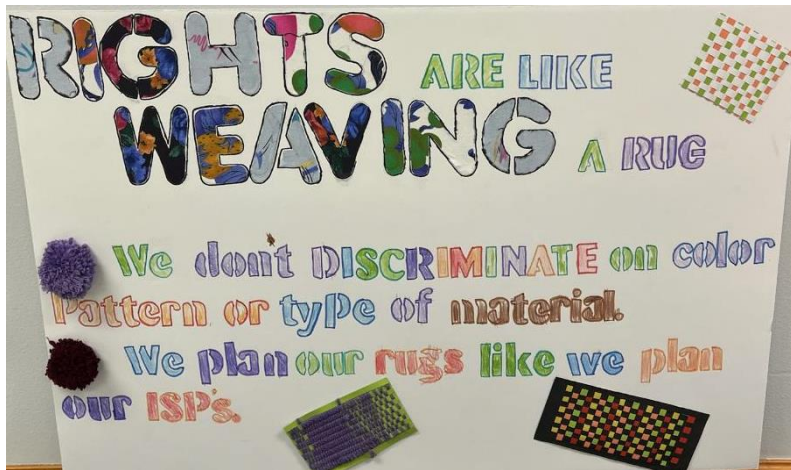 RIGHTS ARE LIKE
WEAVING A RUG
We dont DISCRIMINATE on color
Pattern or type of material.
We plan our rugs like we plan
our ISP's.